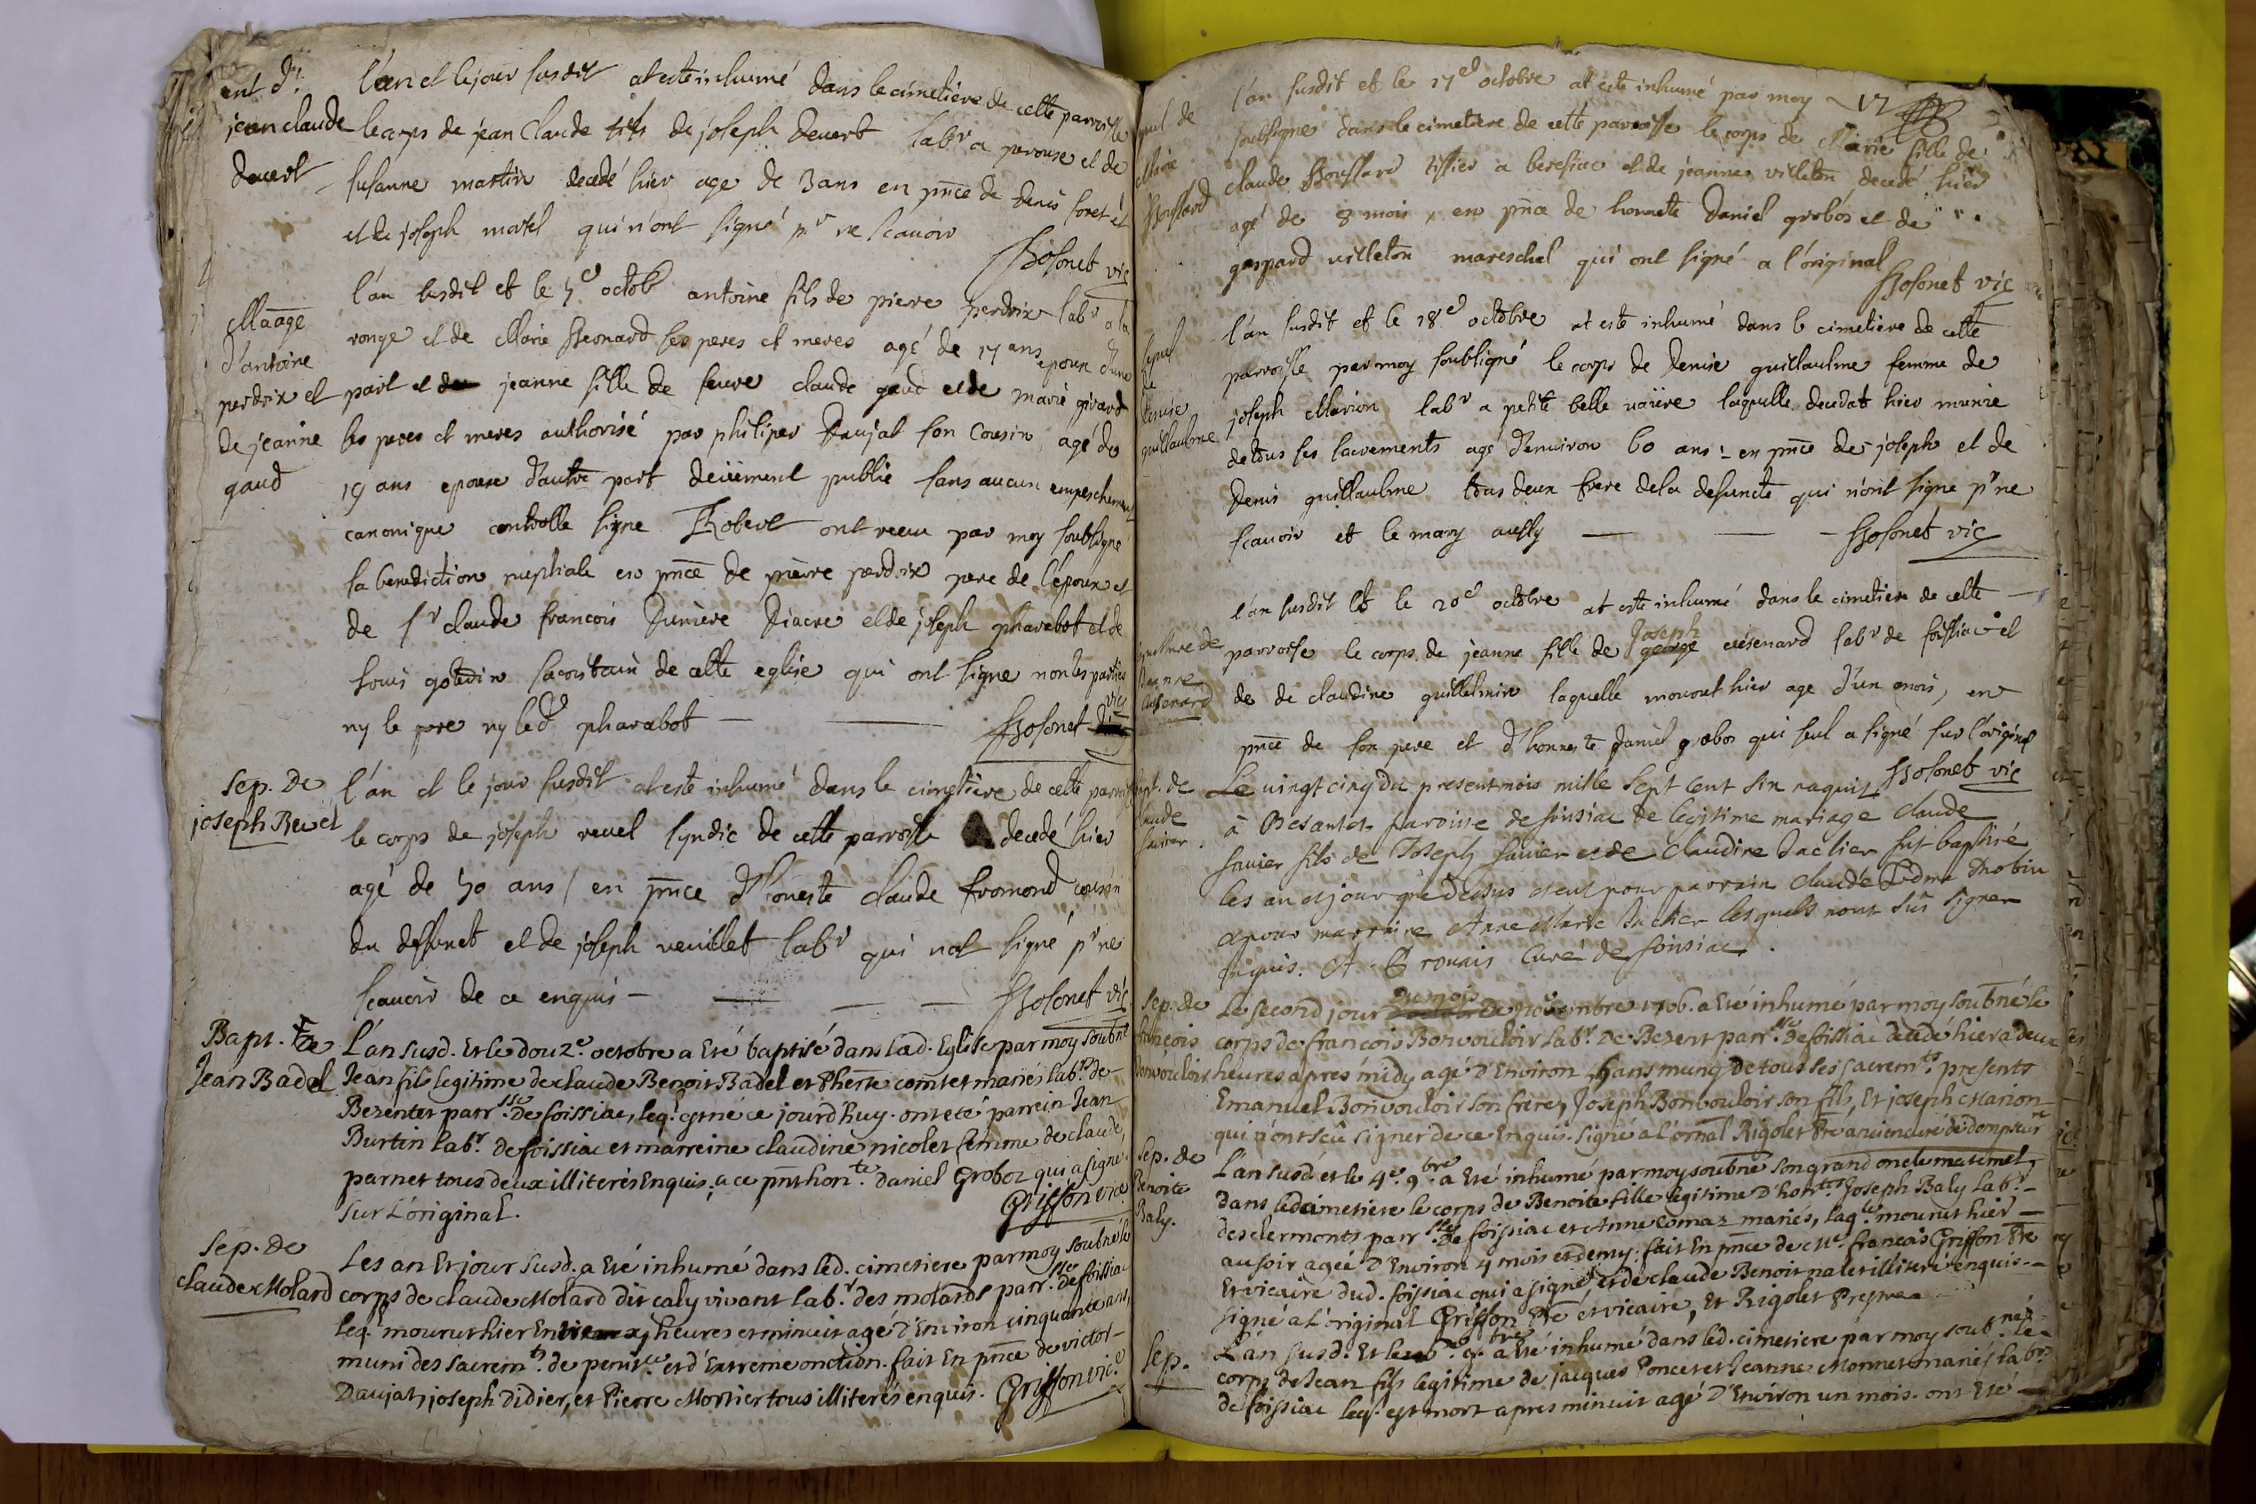 ent d.
jean claude
devert
l'an et le jour susdit at este inhumé dans le cimetiere de cette parroisse
le corps de jean Claude fils de joseph devert labr a perouse et de
susanne martin decedé hier age de 3 ans en pnce de denis foret et
et de joseph morel qui n'ont signé pr ne scavoir
Bosonet vic
Mariage
d'antoine
perdrix et
de jeanne
gaud
l'an susdit et le 7e octob antoine fils de pierre perdrix labr a la
ronge et de Marie Bernard ses peres et meres agé de 17 ans epoux d'une
part et de jeanne fille de feuve claude gaud et de marie girard
ses peres et meres authorisé par philiper Daujat son Cousin agé de
19 ans epouse d'autre part deüement publié sans aucun empeschement
canonique controlle signe Robert ont receu par moy soubsigné
la benediction nuptiale en pnce de pierre perdrix pere de l'époux et
de sr claude francois Diacre et de joseph pharabot et de
louis gotedin sacristain de cette eglise qui ont signe non les parties
ny le pere ny led pharabot
Bosonet vic
Sep. De
joseph Revel
l'an et le jour susdit at este inhumé dans le cimetiere de cette parroisse
le corps de joseph revel syndic de cette parroisse decedé hier
agé de 50 ans / en pnce d'honeste claude fromond cousin
du deffunct et de joseph veuillet labr qui not signé pr ne
scavoir de ce enquis
Bosonet vic
Bapt. De
Jean Badel
L'an susd. Et le douze. octobre a Eté baptisé dans lad. Eglise par moy soubné
Jean fils legitime de claude Benoit Badel et Pherte comtet mariés labrs De
Bezentet parrsse De foissiac, leql. est né ce jourd'huy. ont eté parrein Jean
Burtin labr. de foissiac et marreine claudine nicolet femme de claude,
parnet tous deux illiterés Enquis, a ce pnt honte. daniel Groboz qui a signe
sur L'original.
Griffon vic
Sep. De
claude Molard
Les an Et jour susd. a Eté inhumé dans led. cimetiere par moy soubné le
corps de claude Molard dit caly vivant labr. des molards parrsse de foissiac
leql mourut hier Entre heures et minuit agé d'Environ cinquante ans,
muni des sacremts. de penitce. et d'Extreme onction. fait En pnce de victor
Daujat, joseph Didier, et Pierre Mortier tous illiterés enquis.
Griffon vic.
17
l'an susdit et le 17e octobre at este inhumé par moy
soubsigné dans le cimetiere de cette parroisse le corps de Marie fille de
claude Boussard tissier a beresiac et de jeanne villeton decedé hier
agé de 8 mois, en pnce de honneste daniel grobos et de
gaspard villeton mareschel qui ont signé a l'original
Bosonet vic
Marie
Boussard
l'an susdit et le 18e octobre at este inhumé dans le cimetiere de cette
parroisse par moy soubsigné le corps de denise guillaulme femme de
joseph Marion labr a petite belle vaivre laquelle decedat hier munie
de tous ses sacrements agé d'environ 60 ans : en pnce de joseph et de
denis guillaulme tous deux frere de la defuncte qui n'ont signe pr ne
scavoir et le mary aussy
Bosonet vic
sepul
de
denise
guillaulme
l'an susdit et le 20e octobre at este inhumé dans le cimetiere de cette
parroisse le corps de jeanne fille de Joseph george labr de foissiac et
de de claudine guillelmin laquelle mourut hier age d'un mois, en
pnce de son pere et d'honneste daniel grobos qui seul a signé sur l'original
Bosonet vic
Le vingt cinq du present mois mille sept cent six naquit
à Besantet paroisse de foisiac de legitime mariage claude
savier fils de Joseph savier et de claudine Jaclier fut baptisé
les an et jour que dessus et eut pour parrain claude Edme Drobin
et pour marraine Anne Marie Jaclier lesquels n'ont sût signer
enquis. curé de foisiac.
Sep. de
francois
Bonvouloir
Le second jour du mois De novembre 1706. a Eté inhumé par moy soubné le
corps de francois Bonvouloir labr. De Bezent parrsse De foissiac decedé hier a deux
heures apres midy agé d'Environ ans muny de tous ses sacremts. presents
Emanuel Bonvouloir son frere, Joseph Bonvouloir son fils, Et joseph Marion
qui n'ont sçû signer de ce Enquis. signé a l'ornal Rigolet Pre ancien curé de dompsure
Sep. de
Benoite
Baly.
L'an susd. et le 4e. 9bre a Eté inhumé par moy soubné son grand oncle maternel,
dans led cimetiere le corps de Benoite fille legitime D'honte Joseph Baly labr.
des clermonts parrsse De foissiac et Anne Comaz mariés, laqle mourut hier
au soir agée D'Environ 4 mois et demy. fait En pnce de Mre. francois Griffon Pre
Et vicaire dud. foissiac qui a signé, et de claude Benoit nalet illiteré enquis.
signé a L'original Griffon Pre et vicaire, Et Rigolet Prestre
Sep.
L'an susd. Et le 9bre a Eté inhumé dans led. cimetiere par moy soubné le
corps de Jean fils legitime de jacques Poncet et Jeanne Monnet mariés labrs
de foissiac leql. est mort apres minuit agé D'Environ un mois. ont Eté